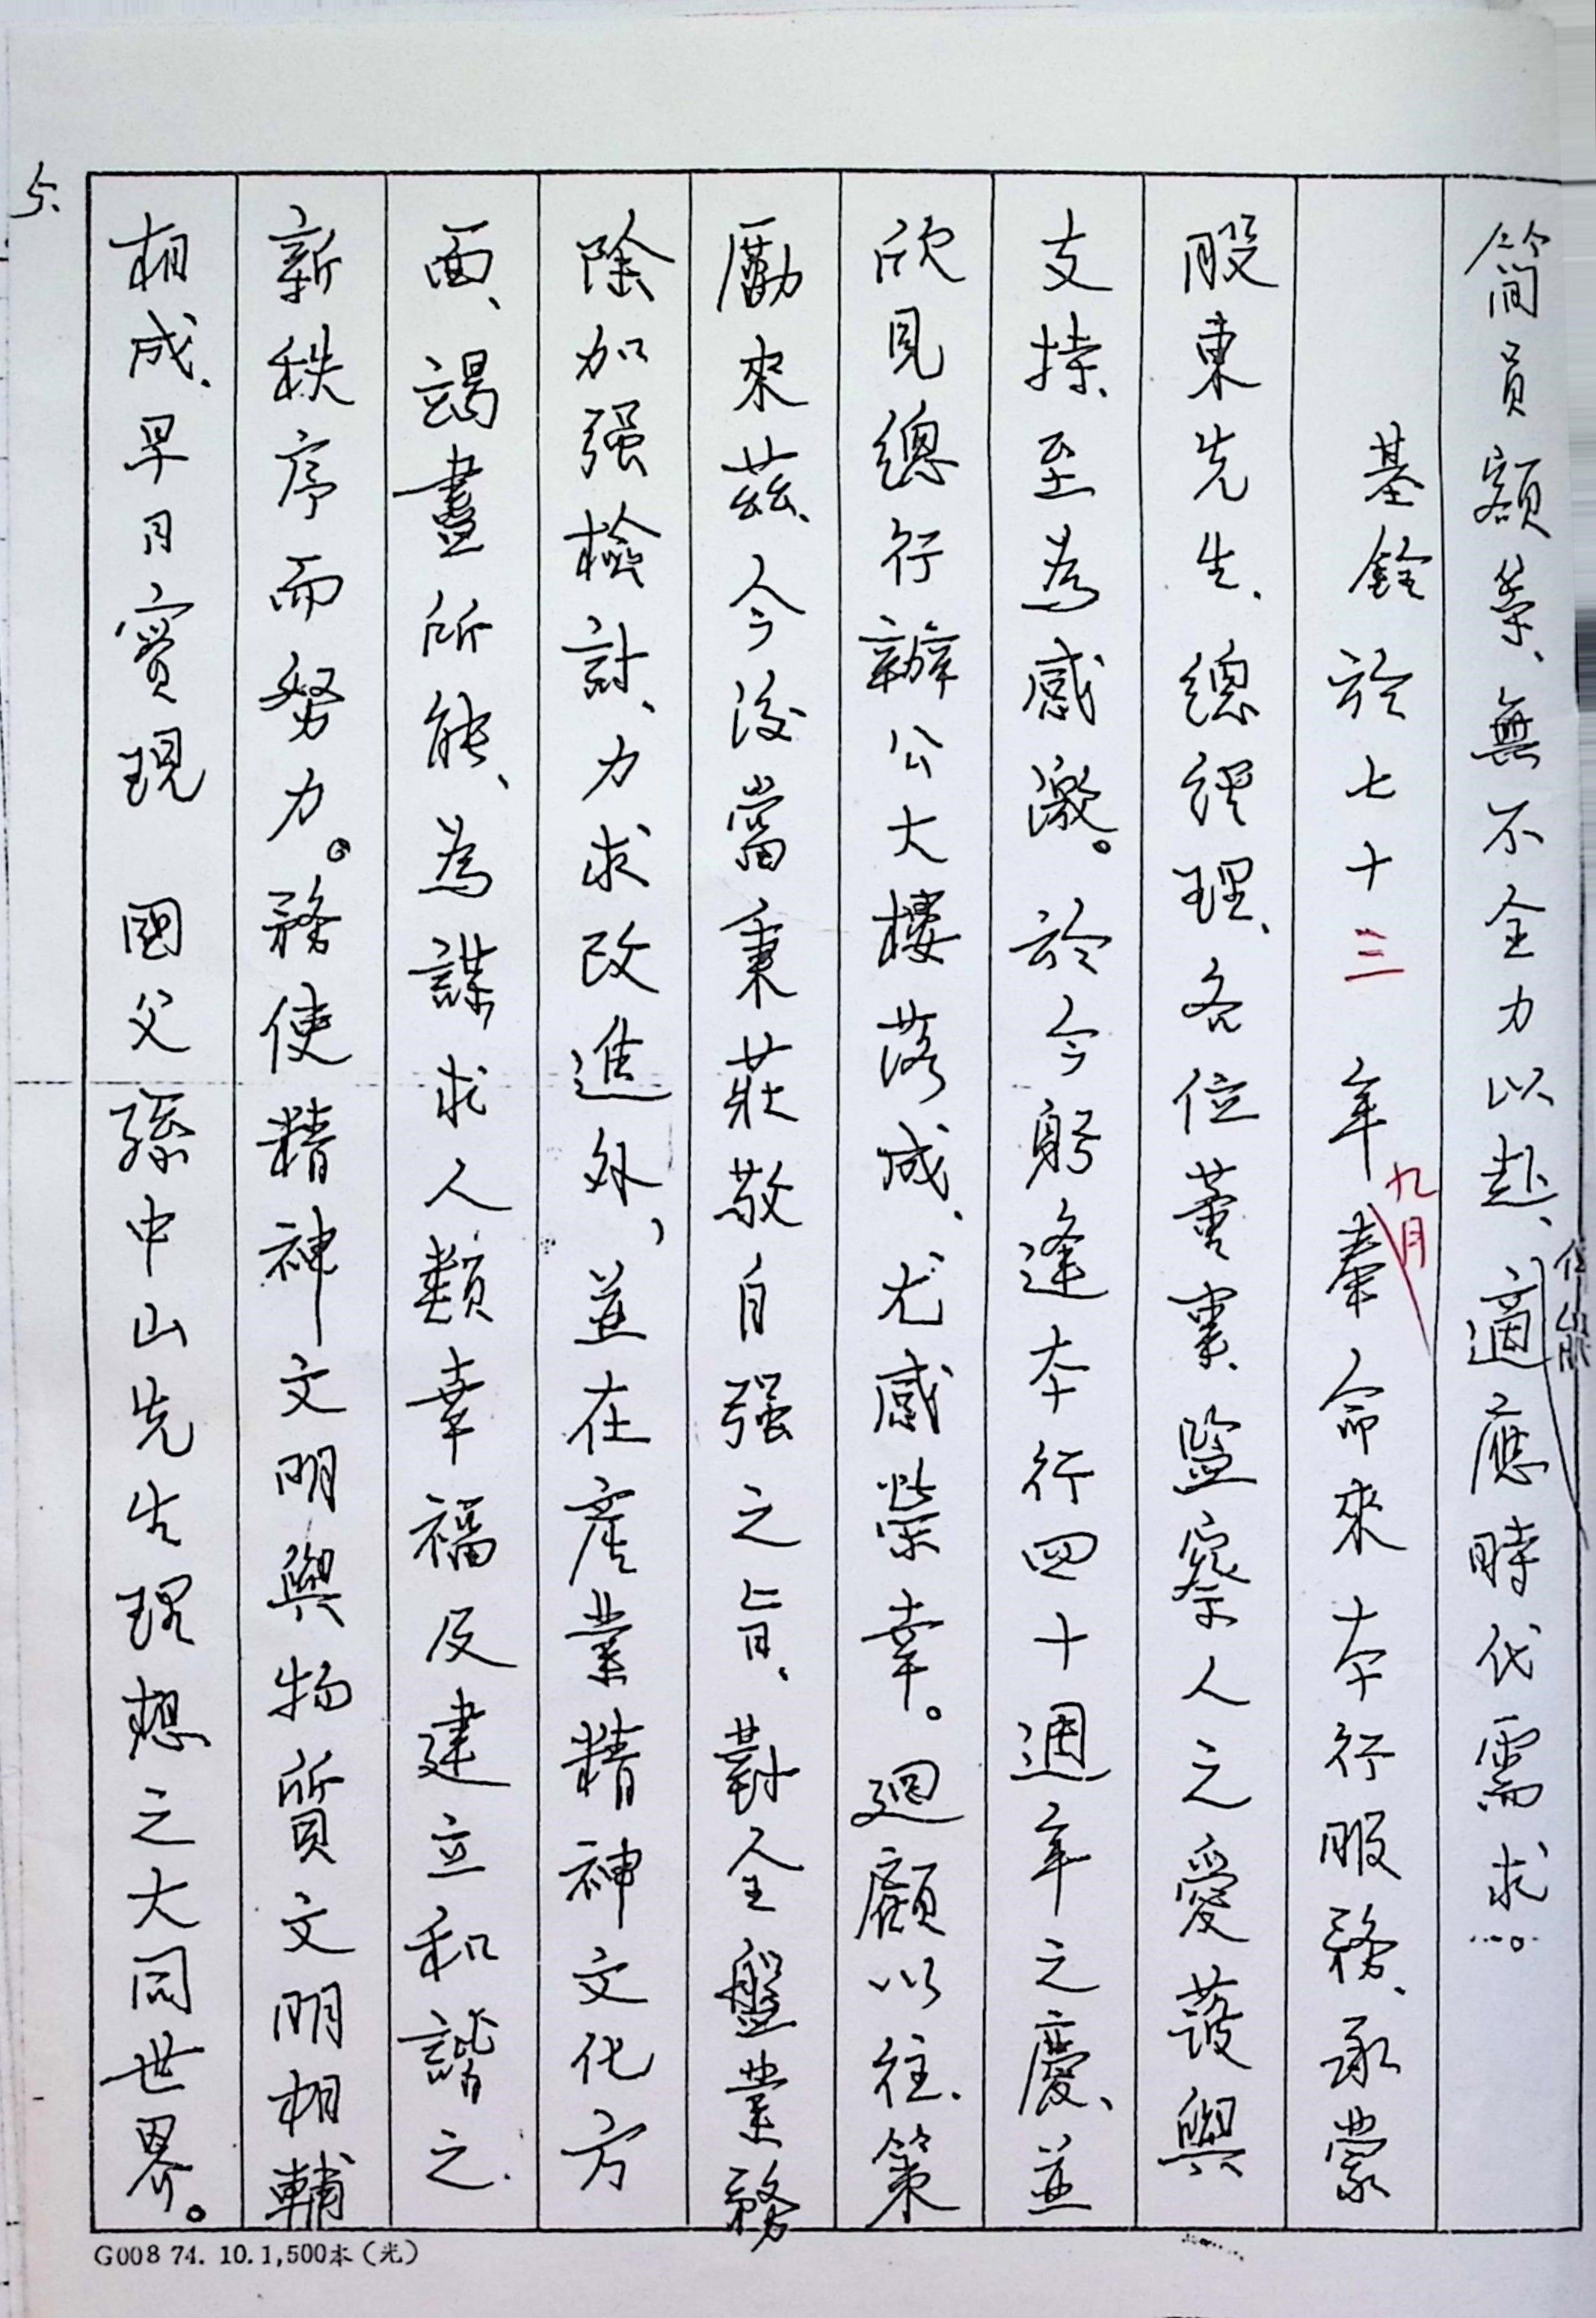 簡員額案、無不全力以赴、適應時代需求。
基銓於七十三年九月奉命來本行服務、承蒙
股東先生、總經理、各位董事、監察人之愛護與
支持、至為感激。於今躬逢本行四十週年之慶、並
欣見總行辦公大樓落成、尤感榮幸。迴顧以往、策
勵來茲、今後當秉莊敬自强之旨、對全盤業務
除加强檢討、力求改進外，並在產業精神文化方
面、竭盡所能、為謀求人類幸福及建立和諧之
新秩序而努力。務使精神文明與物質文明相輔
相成、早日實現　國父孫中山先生理想之大同世界。
5.
G008 74. 10. 1,500本（光）